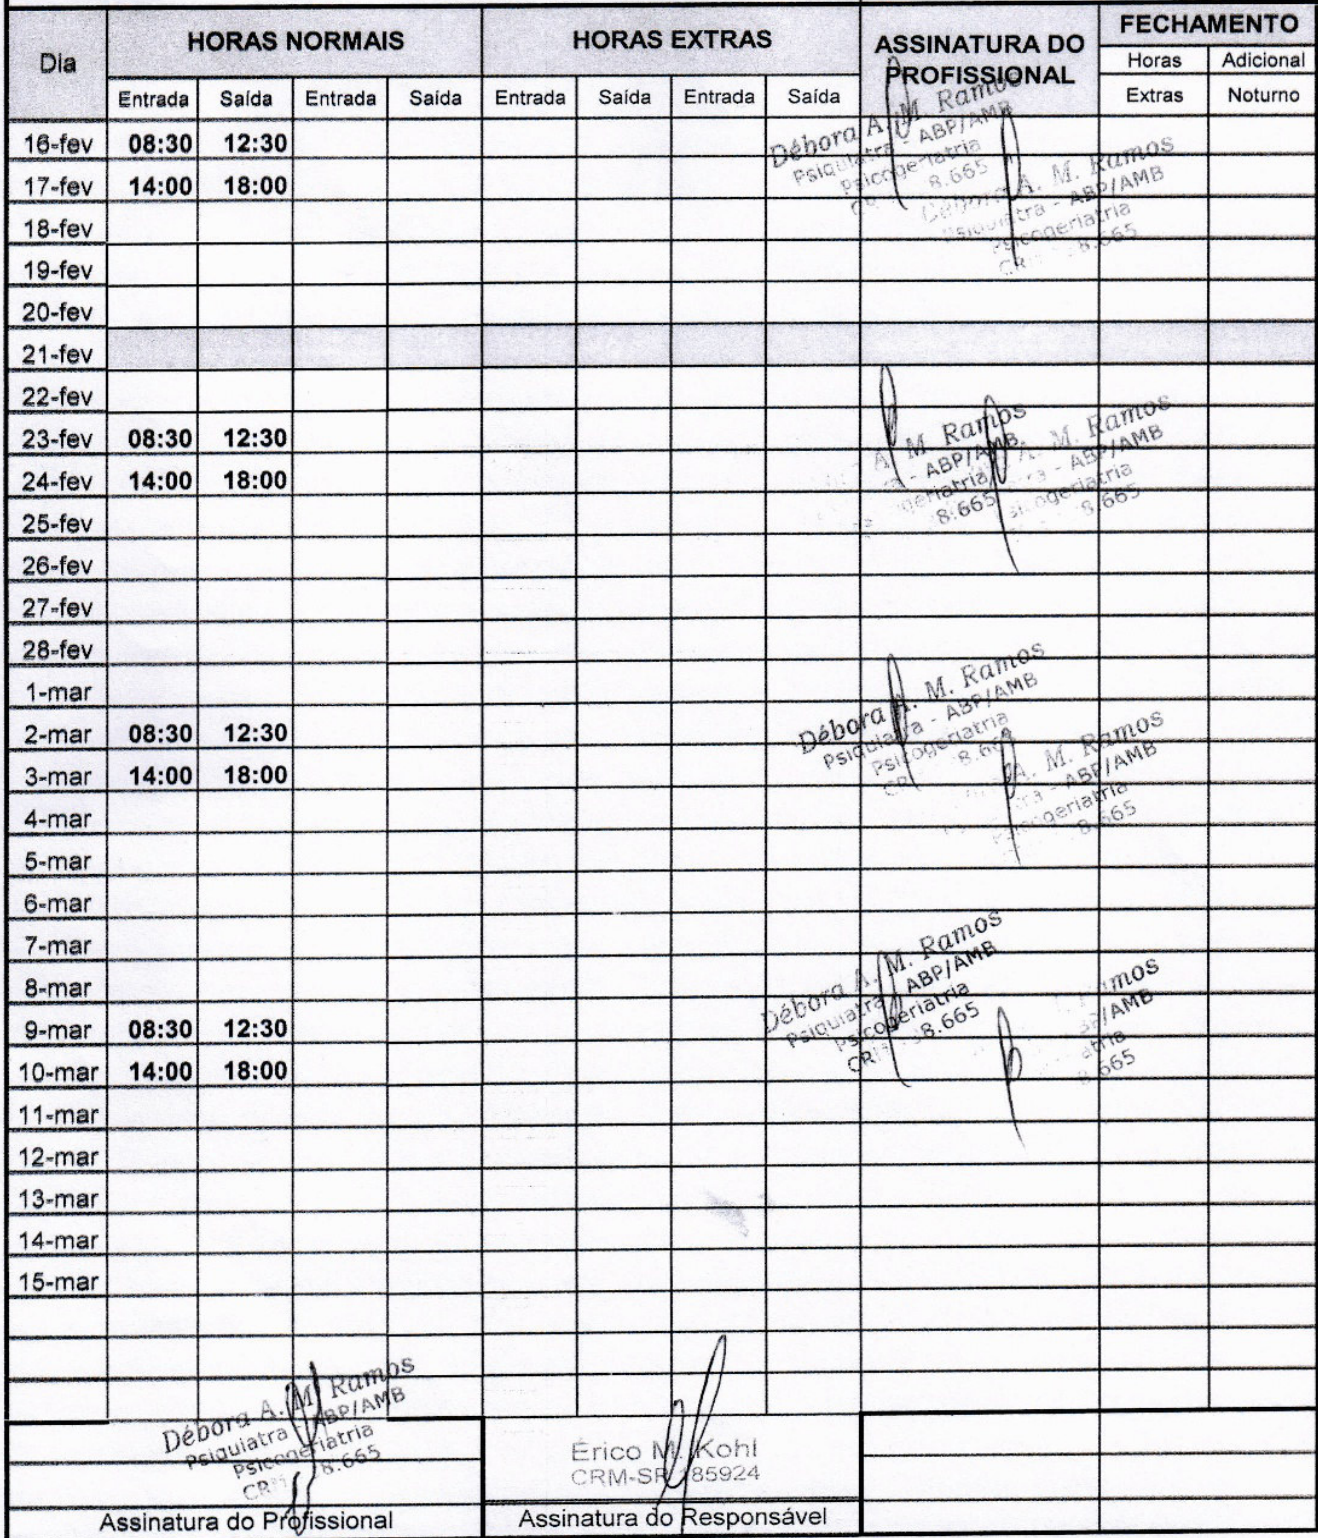 Dia HORAS NORMAIS HORAS EXTRAS ASSINATURA DO PROFISSIONAL FECHAMENTO
Entrada Saída Entrada Saída Entrada Saída Entrada Saída Horas Extras Adicional Noturno
16-fev 08:30 12:30
Débora A. M. Ramos
Psiquiatra - ABP/AMB
Psicogeriatria
8.665
17-fev 14:00 18:00
Débora A. M. Ramos
Psiquiatra - ABP/AMB
Psicogeriatria
8.665
18-fev
19-fev
20-fev
21-fev
22-fev
23-fev 08:30 12:30
A. M. Ramos
- ABP/AMB
geriatria
8.665
24-fev 14:00 18:00
A. M. Ramos
- ABP/AMB
sicogeriatria
8.665
25-fev
26-fev
27-fev
28-fev
1-mar
2-mar 08:30 12:30
Débora A. M. Ramos
Psiquiatra - ABP/AMB
Psicogeriatria
3-mar 14:00 18:00
A. M. Ramos
- ABP/AMB
Psicogeriatria
8.665
4-mar
5-mar
6-mar
7-mar
8-mar
9-mar 08:30 12:30
Débora A. M. Ramos
Psiquiatra - ABP/AMB
Psicogeriatria
8.665
10-mar 14:00 18:00
mos
/AMB
atria
665
11-mar
12-mar
13-mar
14-mar
15-mar
Débora A. M. Ramos
Psiquiatra - ABP/AMB
Psicogeriatria
8.665
Assinatura do Profissional
Érico M. Kohl
CRM-SP 185924
Assinatura do Responsável